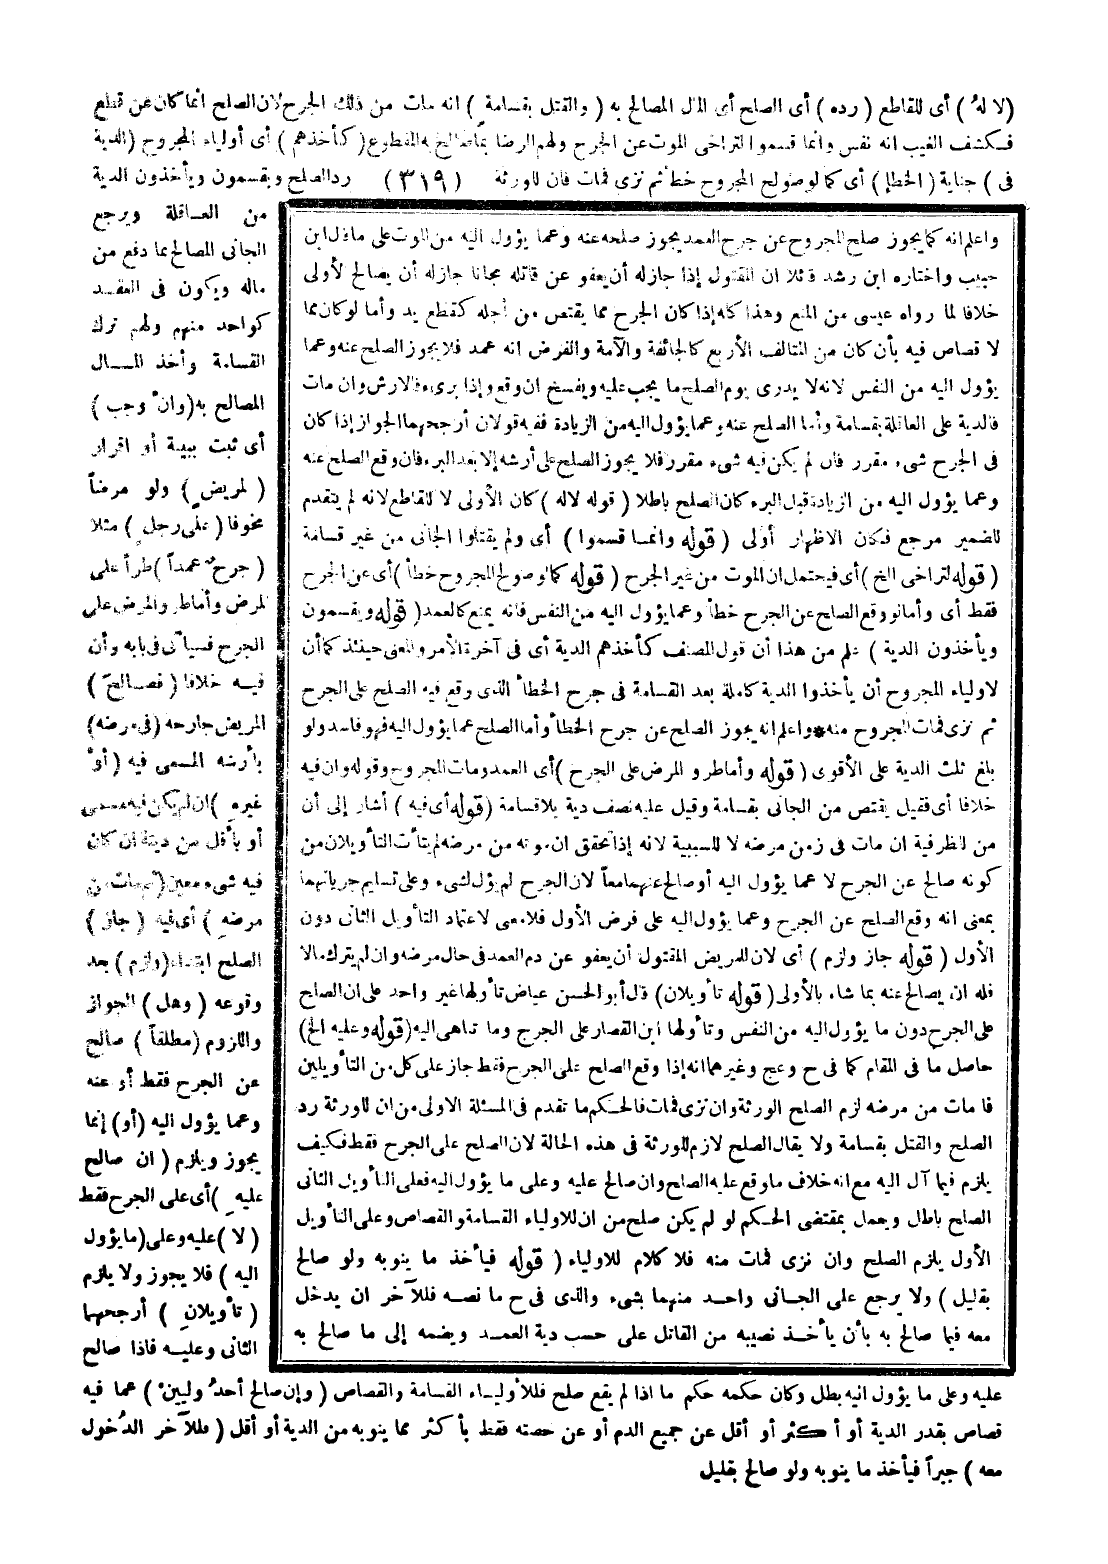 (لا له) أى للقاطع (رده) أى الصلح أى المال المصالح به (والقتل بقسامة) انه مات من ذلك الجرح لان الصلح انما كان عن قطع
فكشف الغيب انه نفس وانما قسموا لتراخى الموت عن الجرح ولهم الرضا بما صالح به المقطوع (كأخذهم) أى أولياء المجروح (الدية
فى) جناية (الخطإ) أى كما لو صولح المجروح خطأ ثم نزى فمات فان للورثة (٣١٩) رد الصلح ويقسمون ويأخذون الدية
من العاقلة ويرجع
الجانى المصالح بما دفع من
ماله ويكون فى العقد
كواحد منهم ولهم ترك
القسامة وأخذ المال
المصالح به (وان وجب)
أى ثبت ببينة أو اقرار
(لمريض) ولو مرضاً
مخوفا (على رجل) مثلا
(جرح عمداً) طرأ على
المرض وأما طرو المرض على
الجرح فسيأتى فى بابه وأن
فيه خلافا (فصالح)
المريض جارحه (فى مرضه)
بأرشه المسمى فيه (أو
غيره) ان لم يكن فيه مسمى
أو بأقل من ديته ان كان
فيه شىء معين (ثم مات من
مرضه) أى فيه (جاز)
الصلح ابتداء (ولزم) بعد
وقوعه (وهل) الجواز
واللزوم (مطلقاً) صالح
عن الجرح فقط أو عنه
وعما يؤول اليه (أو) إنما
يجوز ويلزم (ان صالح
عليه) أى على الجرح فقط
(لا) عليه وعلى (ما يؤول
اليه) فلا يجوز ولا يلزم
(تأويلان) أرجحهما
الثانى وعليه فاذا صالح
عليه وعلى ما يؤول اليه بطل وكان حكمه حكم ما اذا لم يقع صلح فللأولياء القسامة والقصاص (وإن صالح أحد وليين) عما فيه
قصاص بقدر الدية أو أكثر أو أقل عن جميع الدم أو عن حصته فقط بأكثر مما ينوبه من الدية أو أقل (فللآخر الدخول
معه) جبراً فيأخذ ما ينوبه ولو صالح بقليل
واعلم انه كما يجوز صلح المجروح عن جرح العمد يجوز صلحه عنه وعما يؤول اليه من الموت على ما قال ابن
حبيب واختاره ابن رشد قائلا ان المقتول إذا جاز له أن يعفو عن قاتله مجانا جاز له أن يصالح لأولى
خلافا لما رواه عيسى من المنع وهذا كله إذا كان الجرح مما يقتص من أجله كقطع يد وأما لو كان مما
لا قصاص فيه بأن كان من المتالف الأربع كالجائفة والآمة والفرض انه عمد فلا يجوز الصلح عنه وعما
يؤول اليه من النفس لانه لا يدرى يوم الصلح ما يجب عليه ويفسخ ان وقع وإذا برىء فالارش وان مات
فالدية على العاقلة بقسامة وأما الصلح عنه وعما يؤول اليه من الزيادة ففيه قولان أرجحهما الجواز إذا كان
فى الجرح شىء مقرر فان لم يكن فيه شىء مقرر فلا يجوز الصلح على أرشه إلا بعد البرء فان وقع الصلح عنه
وعما يؤول اليه من الزيادة قبل البرء كان الصلح باطلا (قوله لا له) كان الأولى لا للقاطع لانه لم يتقدم
للضمير مرجع فكان الاظهار أولى (قوله وانما قسموا) أى ولم يقتلوا الجانى من غير قسامة
(قوله لتراخى الخ) أى فيحتمل ان الموت من غير الجرح (قوله كما لو صولح المجروح خطأ) أى عن الجرح
فقط أى وأما لو وقع الصلح عن الجرح خطأ وعما يؤول اليه من النفس فانه يمنع كالعمد (قوله ويقسمون
ويأخذون الدية) علم من هذا أن قول المصنف كأخذهم الدية أى فى آخرة الأمر والمعنى حينئذ كما أن
لاولياء المجروح أن يأخذوا الدية كاملة بعد القسامة فى جرح الخطأ الذى وقع فيه الصلح على الجرح
ثم نزى فمات المجروح منه * واعلم انه يجوز الصلح عن جرح الخطأ وأما الصلح عما يؤول اليه فهو فاسد ولو
بلغ ثلث الدية على الأقوى (قوله وأما طرو المرض على الجرح) أى العمد ومات المجروح وقوله وان فيه
خلافا أى فقيل يقتص من الجانى بقسامة وقيل عليه نصف دية بلا قسامة (قوله أى فيه) أشار إلى أن
من للظرفية ان مات فى زمن مرضه لا للسببية لانه إذا تحقق ان موته من مرضه لم يتأت التأويلان من
كونه صالح عن الجرح لا عما يؤول اليه أو صالح عنهما معاً لان الجرح لم يؤل لشىء وعلى تسليم جريانهما
بمعنى انه وقع الصلح عن الجرح وعما يؤول اليه على فرض الأول فلا معنى لاعتماد التأويل الثانى دون
الأول (قوله جاز ولزم) أى لان للمريض المقتول أن يعفو عن دم العمد فى حال مرضه وان لم يترك مالا
فله ان يصالح عنه بما شاء بالأولى (قوله تأويلان) قال أبو الحسن عياض تأولها غير واحد على ان الصلح
على الجرح دون ما يؤول اليه من النفس وتأولها ابن القصار على الجرح وما تناهى اليه (قوله وعليه الخ)
حاصل ما فى المقام كما فى ح وعج وغيرهما انه إذا وقع الصلح على الجرح فقط جاز على كل من التأويلين
فاذا مات من مرضه لزم الصلح الورثة وان نزى فمات فالحكم ما تقدم فى المسئلة الاولى من ان للورثة رد
الصلح والقتل بقسامة ولا يقال الصلح لازم للورثة فى هذه الحالة لان الصلح على الجرح فقط فكيف
يلزم فيما آل اليه مع انه خلاف ما وقع عليه الصلح وان صالح عليه وعلى ما يؤول اليه فعلى التأويل الثانى
الصلح باطل ويعمل بمقتضى الحكم لو لم يكن صلح من ان للاولياء القسامة والقصاص وعلى التأويل
الأول يلزم الصلح وان نزى فمات منه فلا كلام للاولياء (قوله فيأخذ ما ينوبه ولو صالح
بقليل) ولا يرجع على الجانى واحد منهما بشىء والذى فى ح ما نصه فللآخر ان يدخل
معه فيما صالح به بأن يأخذ نصيبه من القاتل على حسب دية العمد ويضمه إلى ما صالح به